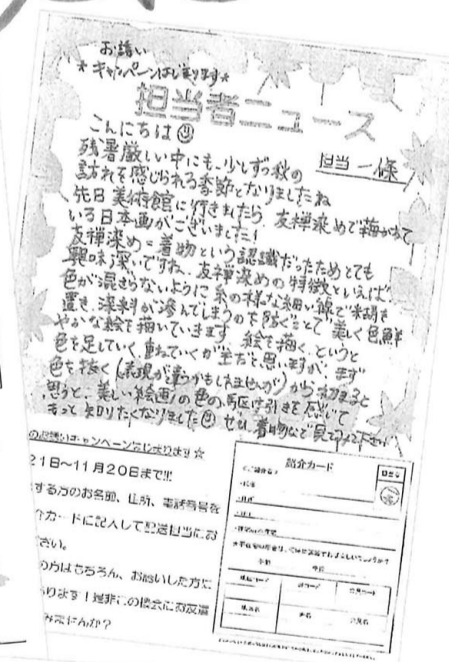 お誘い
★キャンペーンはじまります★
担当者ニュース
こんにちは
担当 一條
残暑厳しい中にも、少しずつ秋の
訪れを感じられる季節となりましたね
先日美術館に行きましたら 友禅染めで描かれて
いる日本画がございました!
友禅染め=着物という認識だったためとても
興味深いですね、友禅染めの特徴といえば
色が混ざらないように糸の様な細い線で糊を
置き、染料が滲んでしまうのを防ぐことで美しく色鮮
やかな絵を描いていきます 絵を描く、というと
色を足していく、重ねていくが主だと思いますが、まず
色を抜く(表現が違うかもしれませんが)から初まると
思うと、美しい絵画の色の駆け引きを感じて
もっと知りたくなりました ぜひ、着物など見てみて下さい
のお誘いキャンペーンはじまります☆
21日~11月20日まで!!!
する方のお名前、住所、電話番号を
介カードに記入して配送担当にお
さい。
の方はもちろん、お誘いした方に
ります!是非この機会にお友達
みませんか?
紹介カード